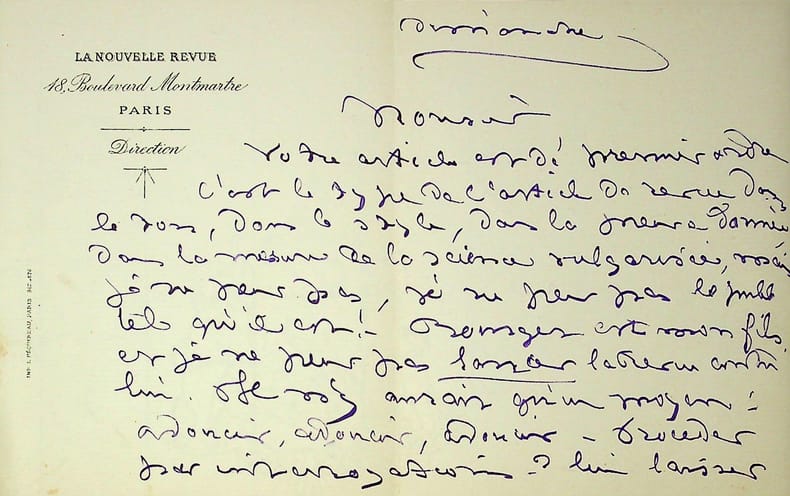 Dimanche
LA NOUVELLE REVUE
18, Boulevard Montmartre
PARIS
Direction
Monsieur
Votre article est de premier ordre
C'est le type de l'article de revue dans
le ton, dans le style, dans la preuve donnée
dans la mesure de la science vulgarisée, mais
je ne peux pas, je ne peux pas le publier
tel qu'il est! - Bourget est mon fils
et je ne peux pas lancer la revue contre
lui. Il n'y aurait qu'un moyen:
adoucir, adoucir, adoucir - Procéder
par interrogations? lui laisser